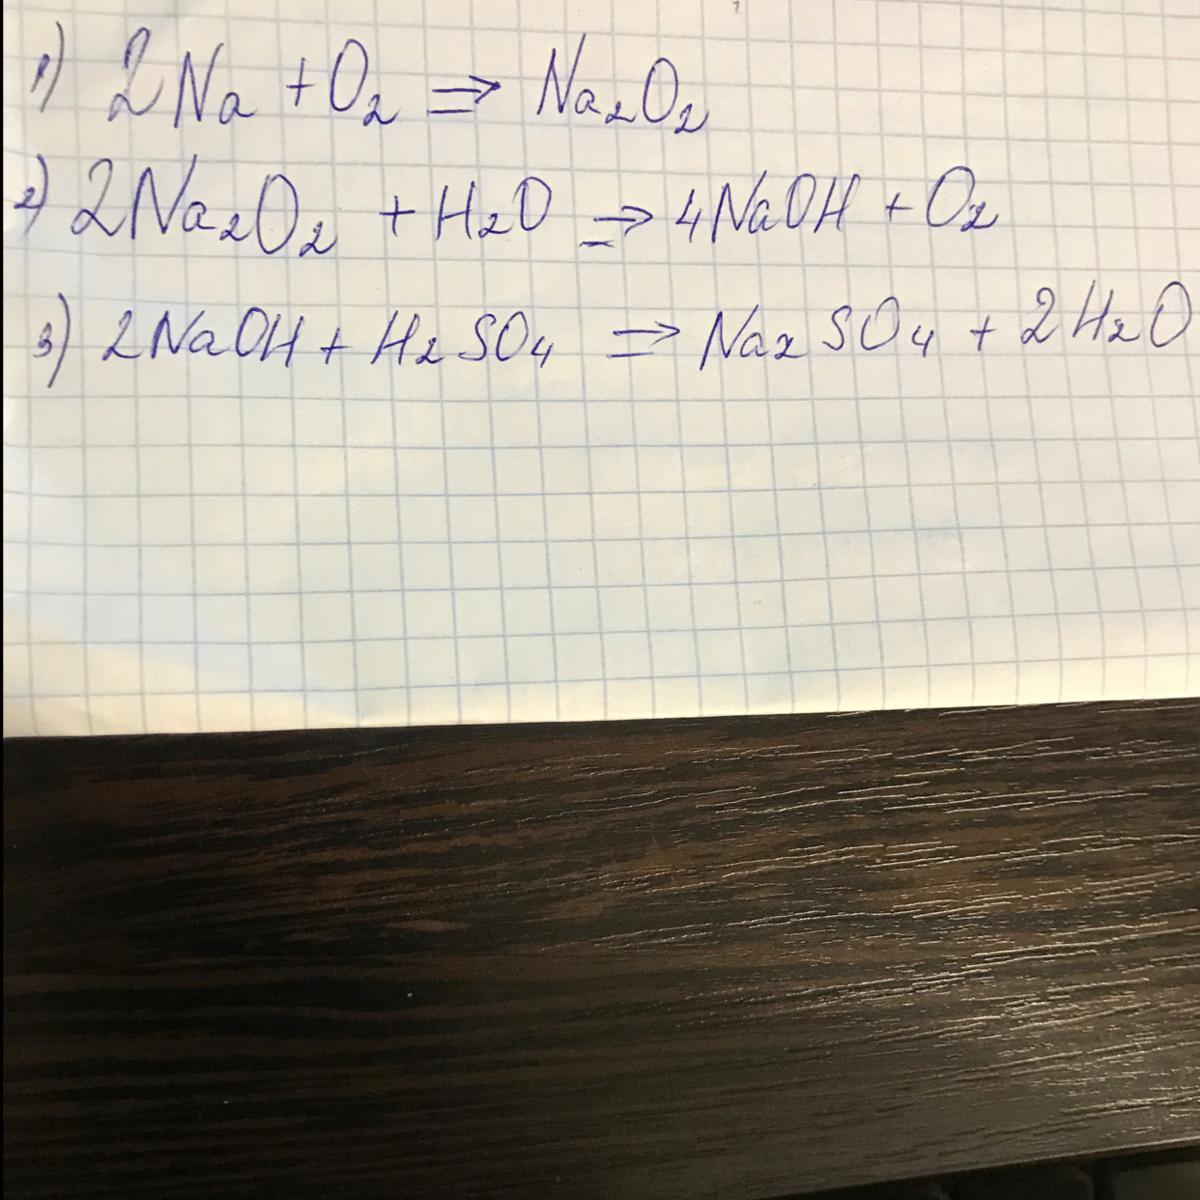 1) 2Na + O₂ ⇒ Na₂O₂
2) 2Na₂O₂ + H₂O ⇒ 4NaOH + O₂
3) 2NaOH + H₂SO₄ ⇒ Na₂SO₄ + 2H₂O